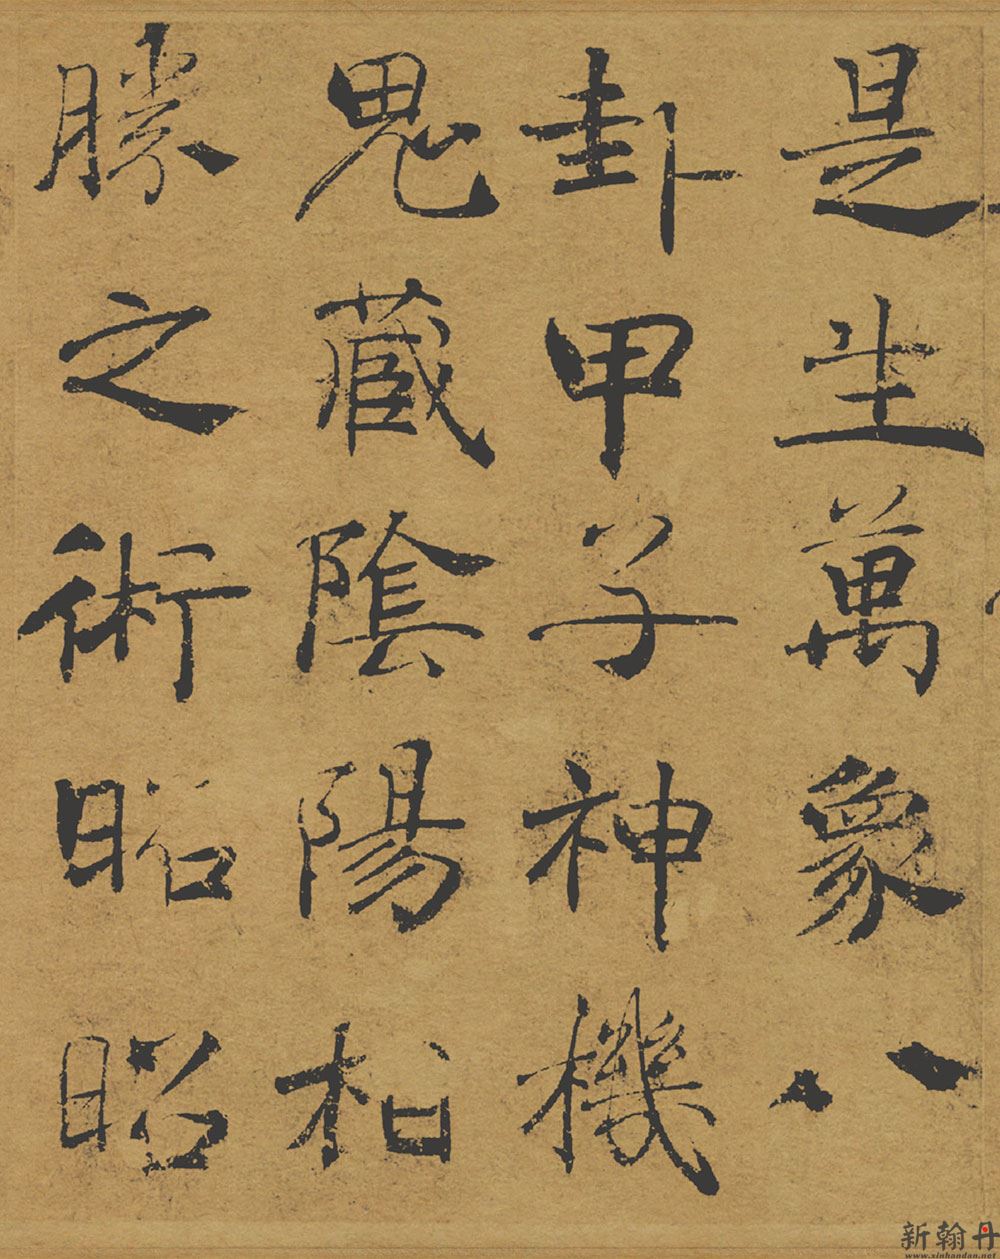 是生萬象八
卦甲子神機
鬼藏陰陽相
勝之術昭昭
新翰丹
www.xinhandan.net